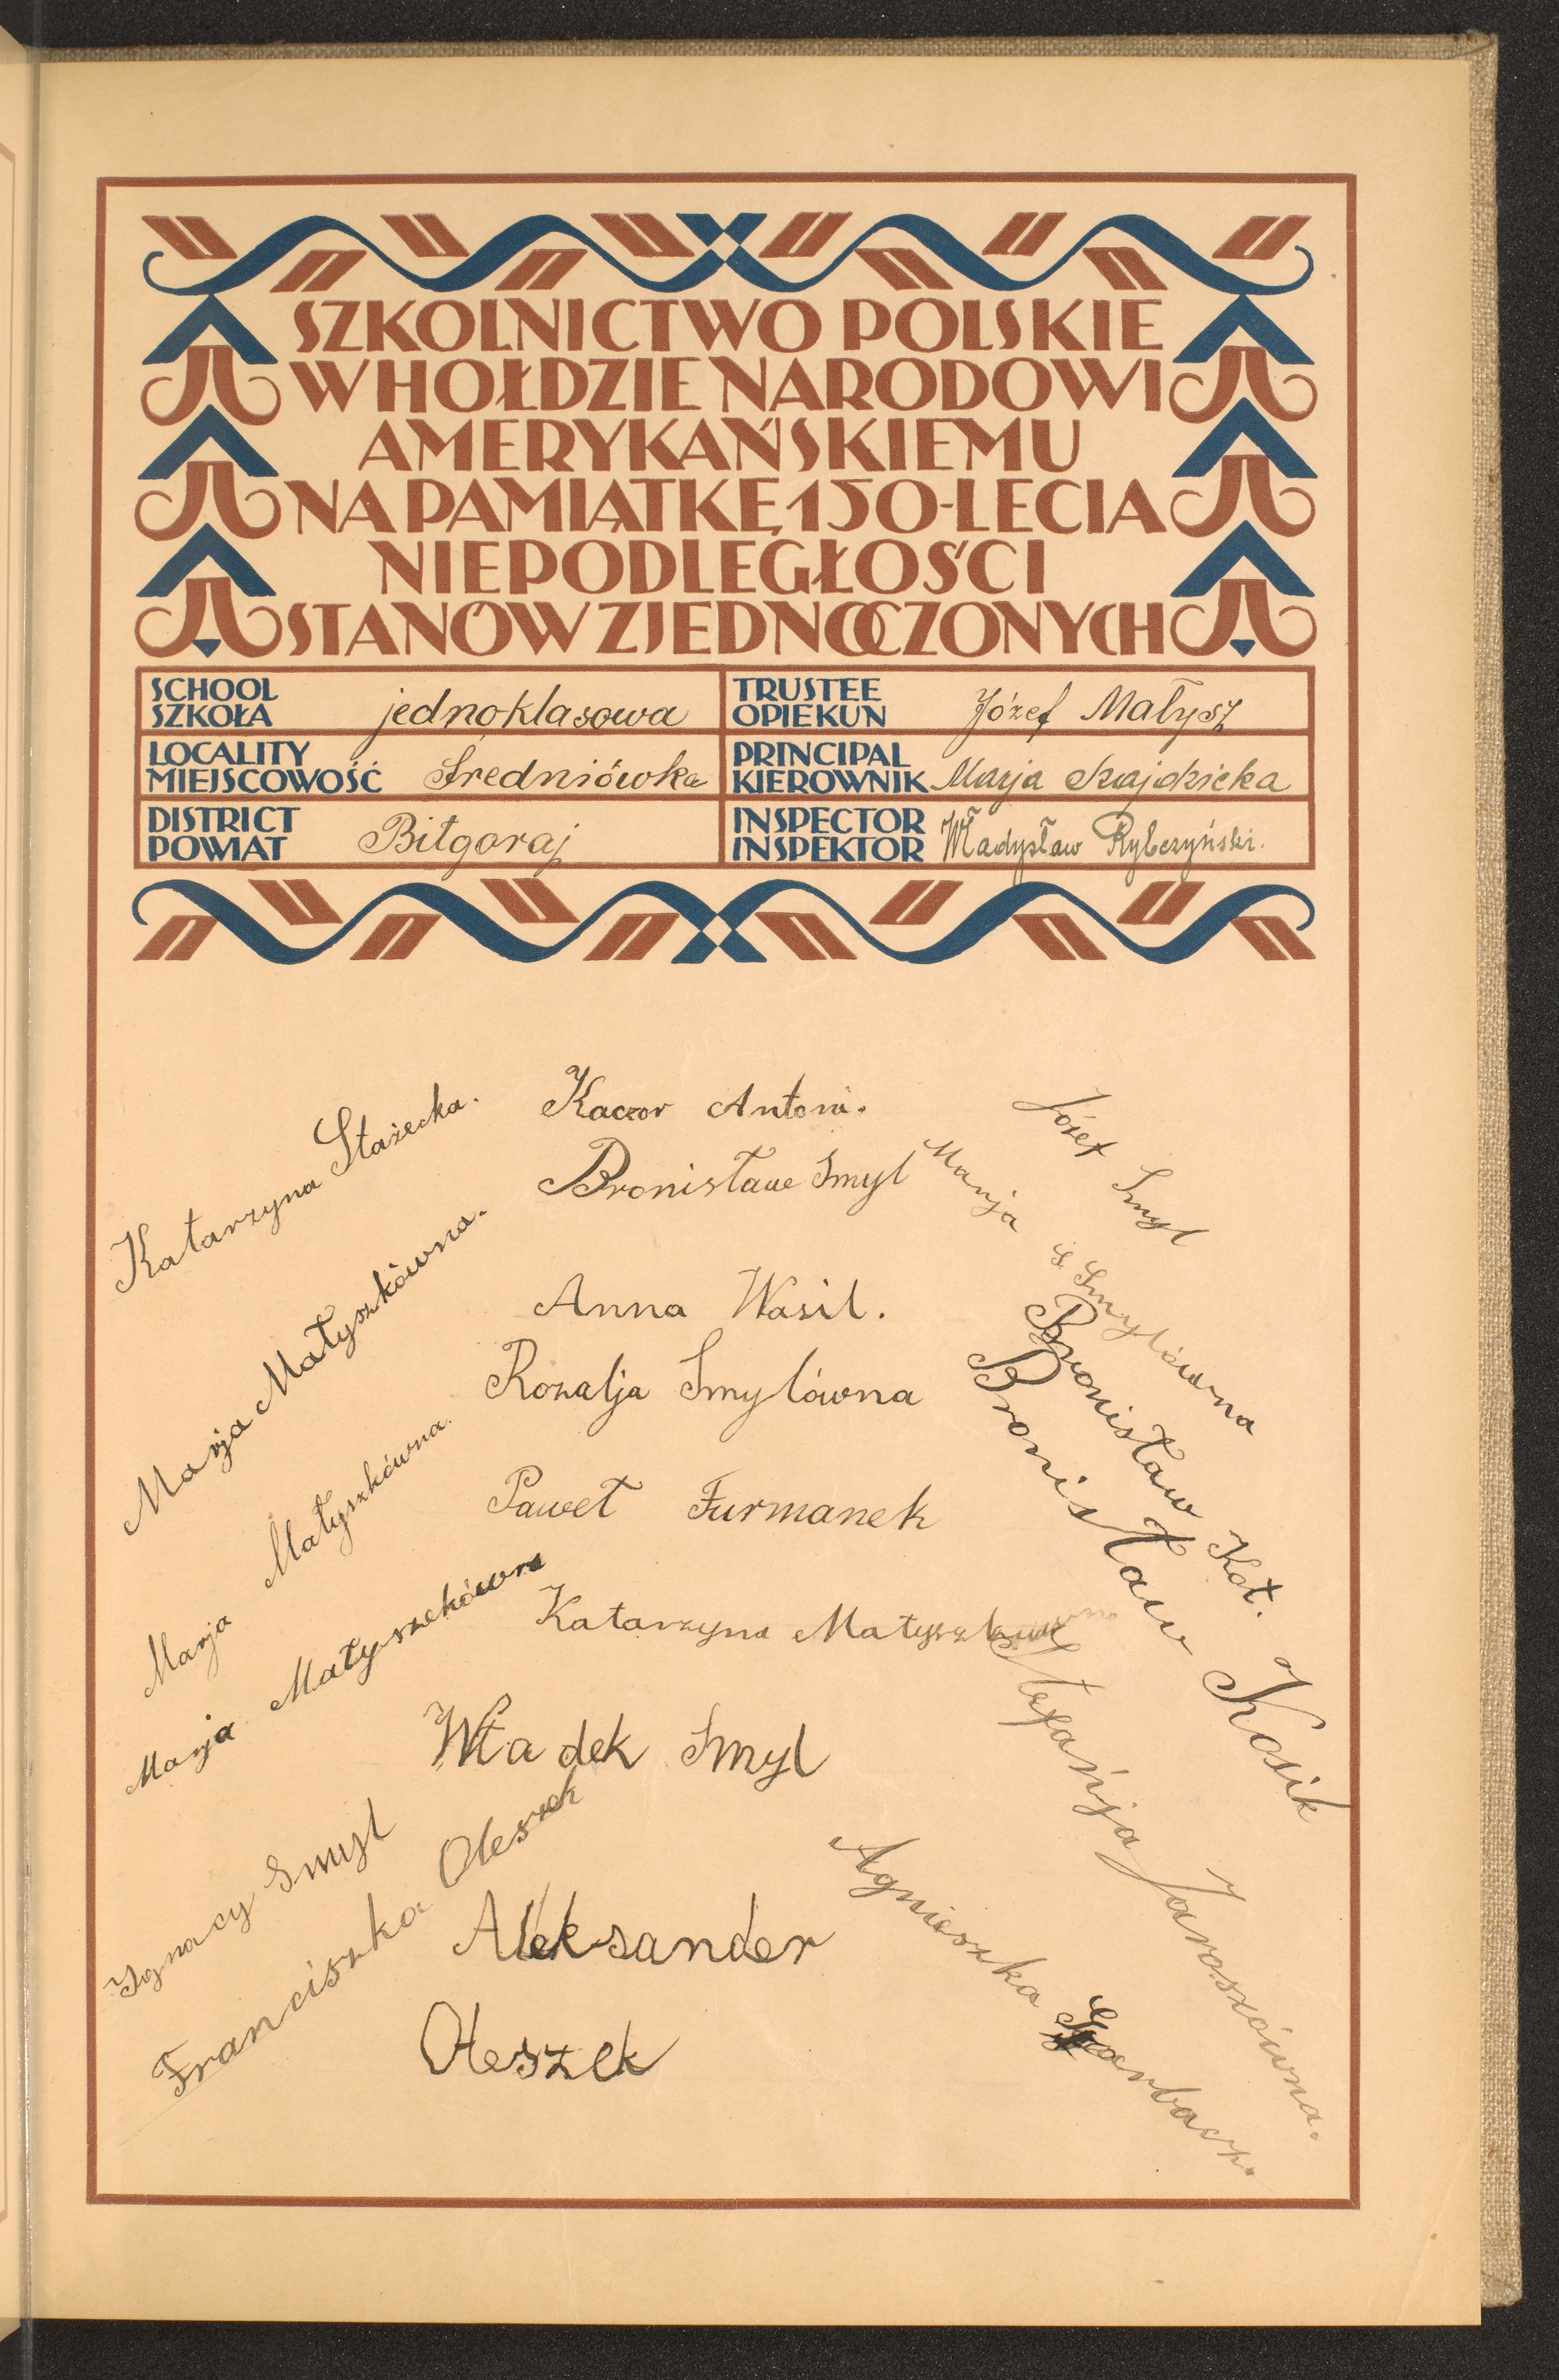 SZKOLNICTWO POLSKIE
W HOŁDZIE NARODOWI
AMERYKAŃSKIEMU
NA PAMIĄTKĘ 150-LECIA
NIEPODLEGŁOŚCI
STANÓW ZJEDNOCZONYCH
SCHOOL
SZKOŁA jednoklasowa
TRUSTEE
OPIEKUN Józef Małysz
LOCALITY
MIEJSCOWOŚĆ Średniówka
PRINCIPAL
KIEROWNIK Marja
DISTRICT
POWIAT Biłgoraj
INSPECTOR
INSPEKTOR Władysław Rybczyński.
Katarzyna Stażecka.
Marja Małyszkówna.
Marja Małyszkówna.
Marja Małyszekówna
Ignacy Smyl
Franciszka Oleszek
Kaczor Antoni.
Bronisław Smyl
Anna Wasil.
Rozalja Smylówna
Paweł Furmanek
Katarzyna Małyszkówna
Władek Smyl
Aleksander
Oleszek
Józef Smyl
Marja S. Smylówna
Bronisław Kot.
Bronisław Kosik
Stefańja Jaroszówna.
Agnieszka Garbacz.